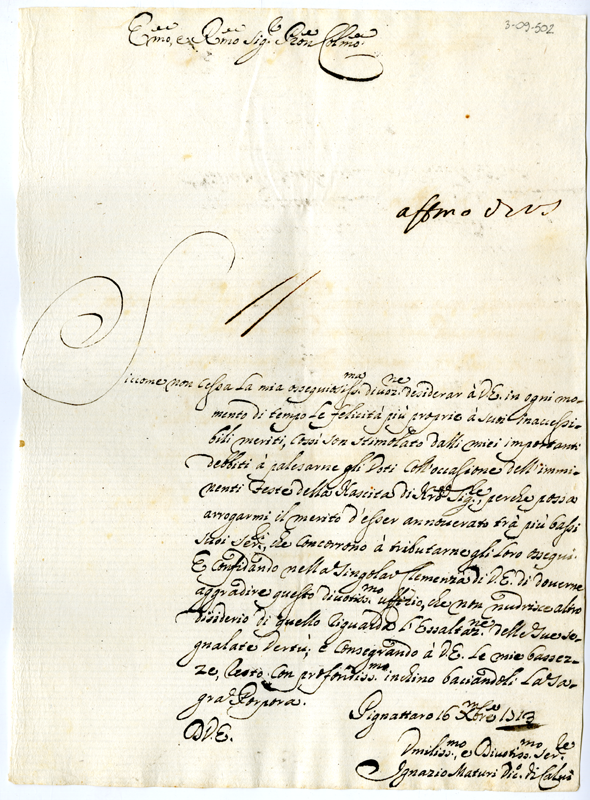 3-09-502
Em.o, e Rmo Sig.r Pron Colmo
affmo
Siccome non cessa la mia ossequiosiss.ma divoz.ne desiderar à V.E. in ogni mo-
mento di tempo le felicità più proprie à suoi inaccessi-
bili meriti, così son stimolato dalli miei importanti
debbiti à palesarne gli Voti coll'occasione dell'immi-
nenti Feste della Nascita di Nro Sig.re, perche possa
arrogarmi il merito d'esser annoverato trà più bassi
suoi Ser.ri, che concorrono à tributarne gli loro ossequi.
E Confidando nella singolar Clemenza di V.E. di doverne
aggradire questo divotiss.mo uffizio, che non nudrisce altro
disiderio di quello riguarda l'Essaltaz.ne delle sue se-
gnalate Vertù; e consegrando à V.E. le mie bassez-
ze, resto con profondiss.mo inchino baciandoli la Sa-
gra Porpora.
Pignattaro 16 Xbre 1713
D.V.E.
Umiliss.mo, e Divotiss.mo Ser.re
Ignazio Maturi Vic.o di Calvi